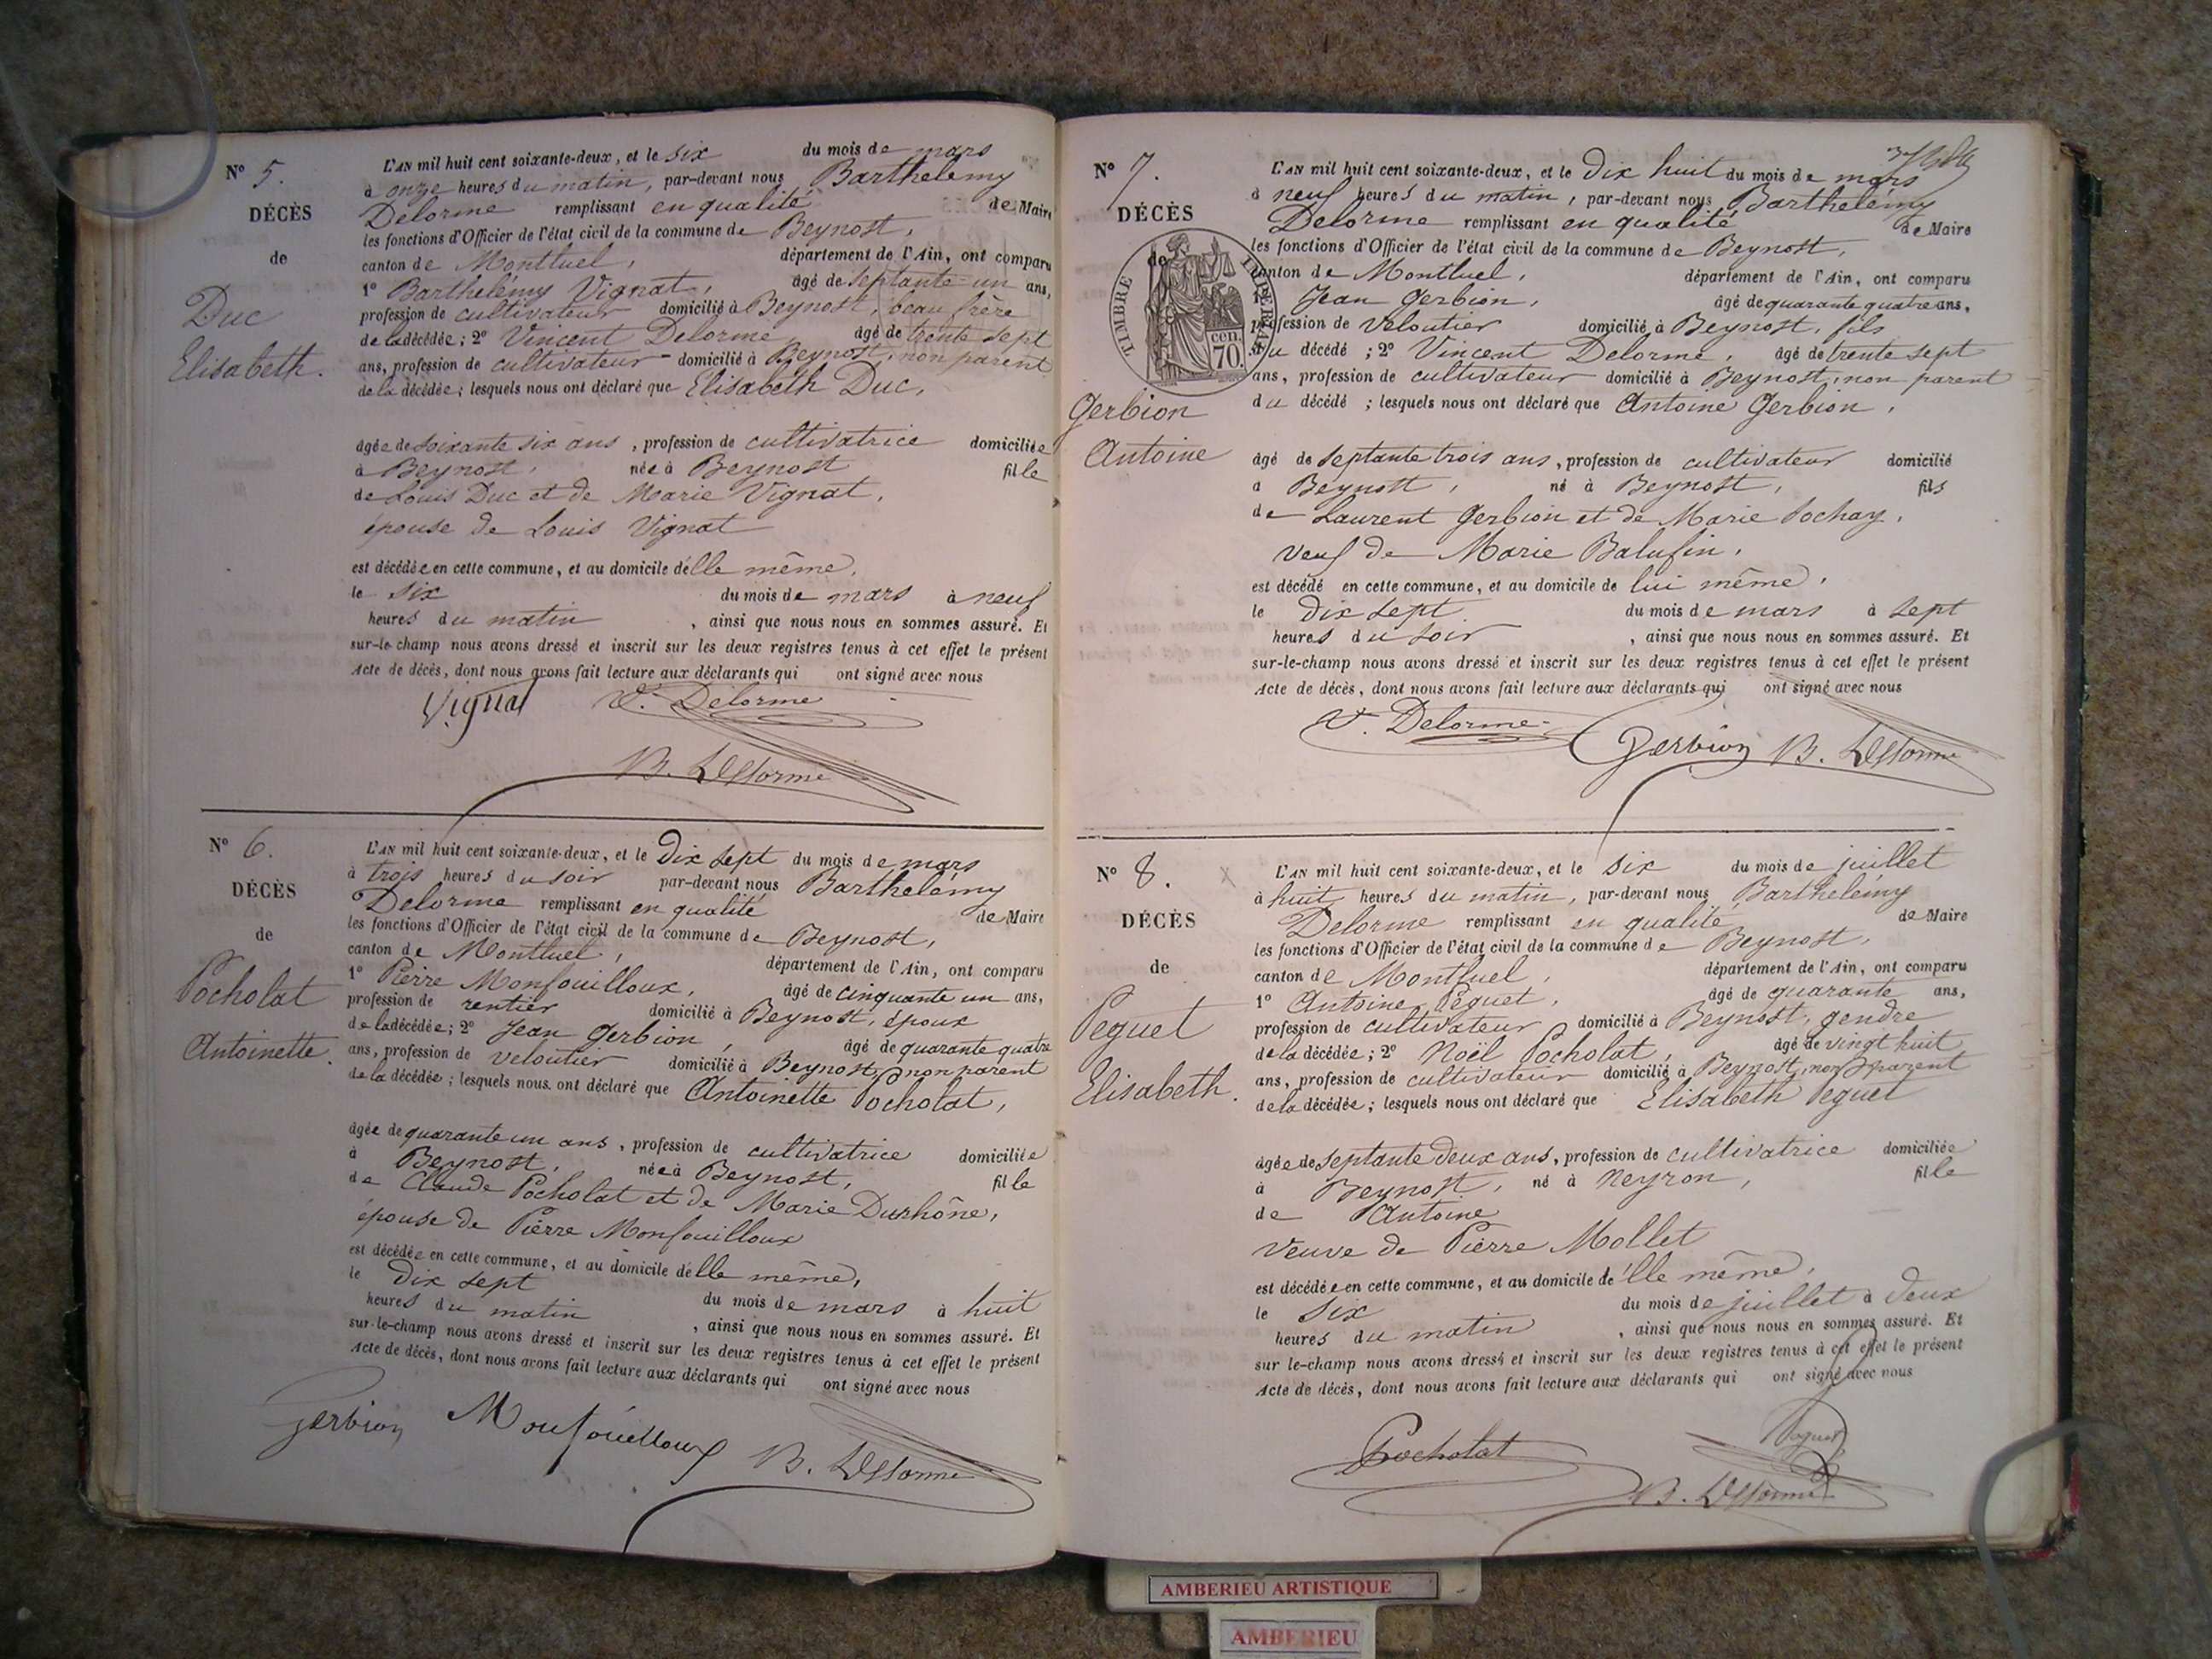 N° 5.
DÉCÈS
de
Duc
Elisabeth.
L'AN mil huit cent soixante-deux, et le six du mois de mars
à onze heures du matin, par-devant nous Barthelemy
Delorme remplissant en qualité de Maire
les fonctions d'Officier de l'état civil de la commune de Beynost,
canton de Montluel, département de l'Ain, ont comparu
1° Barthelemy Vignat, âgé de septante-un ans,
profession de cultivateur domicilié à Beynost, beau frère
de la décédée; 2° Vincent Delorme âgé de trente sept
ans, profession de cultivateur domicilié à Beynost, non parent
de la décédée; lesquels nous ont déclaré que Elisabeth Duc,
âgée de soixante six ans, profession de cultivatrice domiciliée
à Beynost, née à Beynost fille
de Louis Duc et de Marie Vignat,
épouse de Louis Vignat
est décédée en cette commune, et au domicile d'elle même,
le six du mois de mars à neuf
heures du matin, ainsi que nous nous en sommes assuré. Et
sur-le-champ nous avons dressé et inscrit sur les deux registres tenus à cet effet le présent
Acte de décès, dont nous avons fait lecture aux déclarants qui ont signé avec nous
Vignat V. Delorme
B. Delorme
N° 6.
DÉCÈS
de
Pocholat
Antoinette.
L'AN mil huit cent soixante-deux, et le dix sept du mois de mars
à trois heures du soir par-devant nous Barthelemy
Delorme remplissant en qualité de Maire
les fonctions d'Officier de l'état civil de la commune de Beynost,
canton de Montluel, département de l'Ain, ont comparu
1° Pierre Monfouilloux, âgé de cinquante un ans,
profession de rentier domicilié à Beynost, époux
de la décédée; 2° Jean Gerbion, âgé de quarante quatre
ans, profession de veloutier domicilié à Beynost, non parent
de la décédée; lesquels nous ont déclaré que Antoinette Pocholat,
âgée de quarante un ans, profession de cultivatrice domiciliée
à Beynost, née à Beynost, fille
de Claude Pocholat et de Marie Durhône,
épouse de Pierre Monfouilloux
est décédée en cette commune, et au domicile d'elle même,
le dix sept du mois de mars à huit
heures du matin, ainsi que nous nous en sommes assuré. Et
sur-le-champ nous avons dressé et inscrit sur les deux registres tenus à cet effet le présent
Acte de décès, dont nous avons fait lecture aux déclarants qui ont signé avec nous
Gerbion Monfouilloux B. Delorme
N° 7.
DÉCÈS
de
TIMBRE IMPERIAL
cen. 70.
Gerbion
Antoine
L'AN mil huit cent soixante-deux, et le dix huit du mois de mars
à neuf heures du matin, par-devant nous Barthelemy
Delorme remplissant en qualité de Maire
les fonctions d'Officier de l'état civil de la commune de Beynost,
canton de Montluel, département de l'Ain, ont comparu
1° Jean Gerbion, âgé de quarante quatre ans,
profession de veloutier domicilié à Beynost, fils
du décédé; 2° Vincent Delorme, âgé de trente sept
ans, profession de cultivateur domicilié à Beynost, non parent
du décédé; lesquels nous ont déclaré que Antoine Gerbion,
âgé de septante trois ans, profession de cultivateur domicilié
à Beynost, né à Beynost, fils
de Laurent Gerbion et de Marie Sochay,
veuf de Marie Balufin,
est décédé en cette commune, et au domicile de lui même,
le dix sept du mois de mars à sept
heures du soir, ainsi que nous nous en sommes assuré. Et
sur-le-champ nous avons dressé et inscrit sur les deux registres tenus à cet effet le présent
Acte de décès, dont nous avons fait lecture aux déclarants qui ont signé avec nous
V. Delorme Gerbion B. Delorme
N° 8.
DÉCÈS
de
Peguet
Elisabeth.
L'AN mil huit cent soixante-deux, et le six du mois de juillet
à huit heures du matin, par-devant nous Barthelémy
Delorme remplissant en qualité de Maire
les fonctions d'Officier de l'état civil de la commune de Beynost,
canton de Montluel, département de l'Ain, ont comparu
1° Antoine Peguet, âgé de quarante ans,
profession de cultivateur domicilié à Beynost, gendre
de la décédée; 2° Noël Pocholat, âgé de vingt huit
ans, profession de cultivateur domicilié à Beynost, non parent
de la décédée; lesquels nous ont déclaré que Elisabeth Peguet
âgée de septante deux ans, profession de cultivatrice domiciliée
à Beynost, né à Neyron, fille
de Antoine
veuve de Pierre Mollet
est décédée en cette commune, et au domicile de'lle même,
le six du mois de juillet à deux
heures du matin, ainsi que nous nous en sommes assuré. Et
sur-le-champ nous avons dressé et inscrit sur les deux registres tenus à cet effet le présent
Acte de décès, dont nous avons fait lecture aux déclarants qui ont signé avec nous
Pocholat Peguet
B. Delorme
AMBERIEU ARTISTIQUE
AMBERIEU